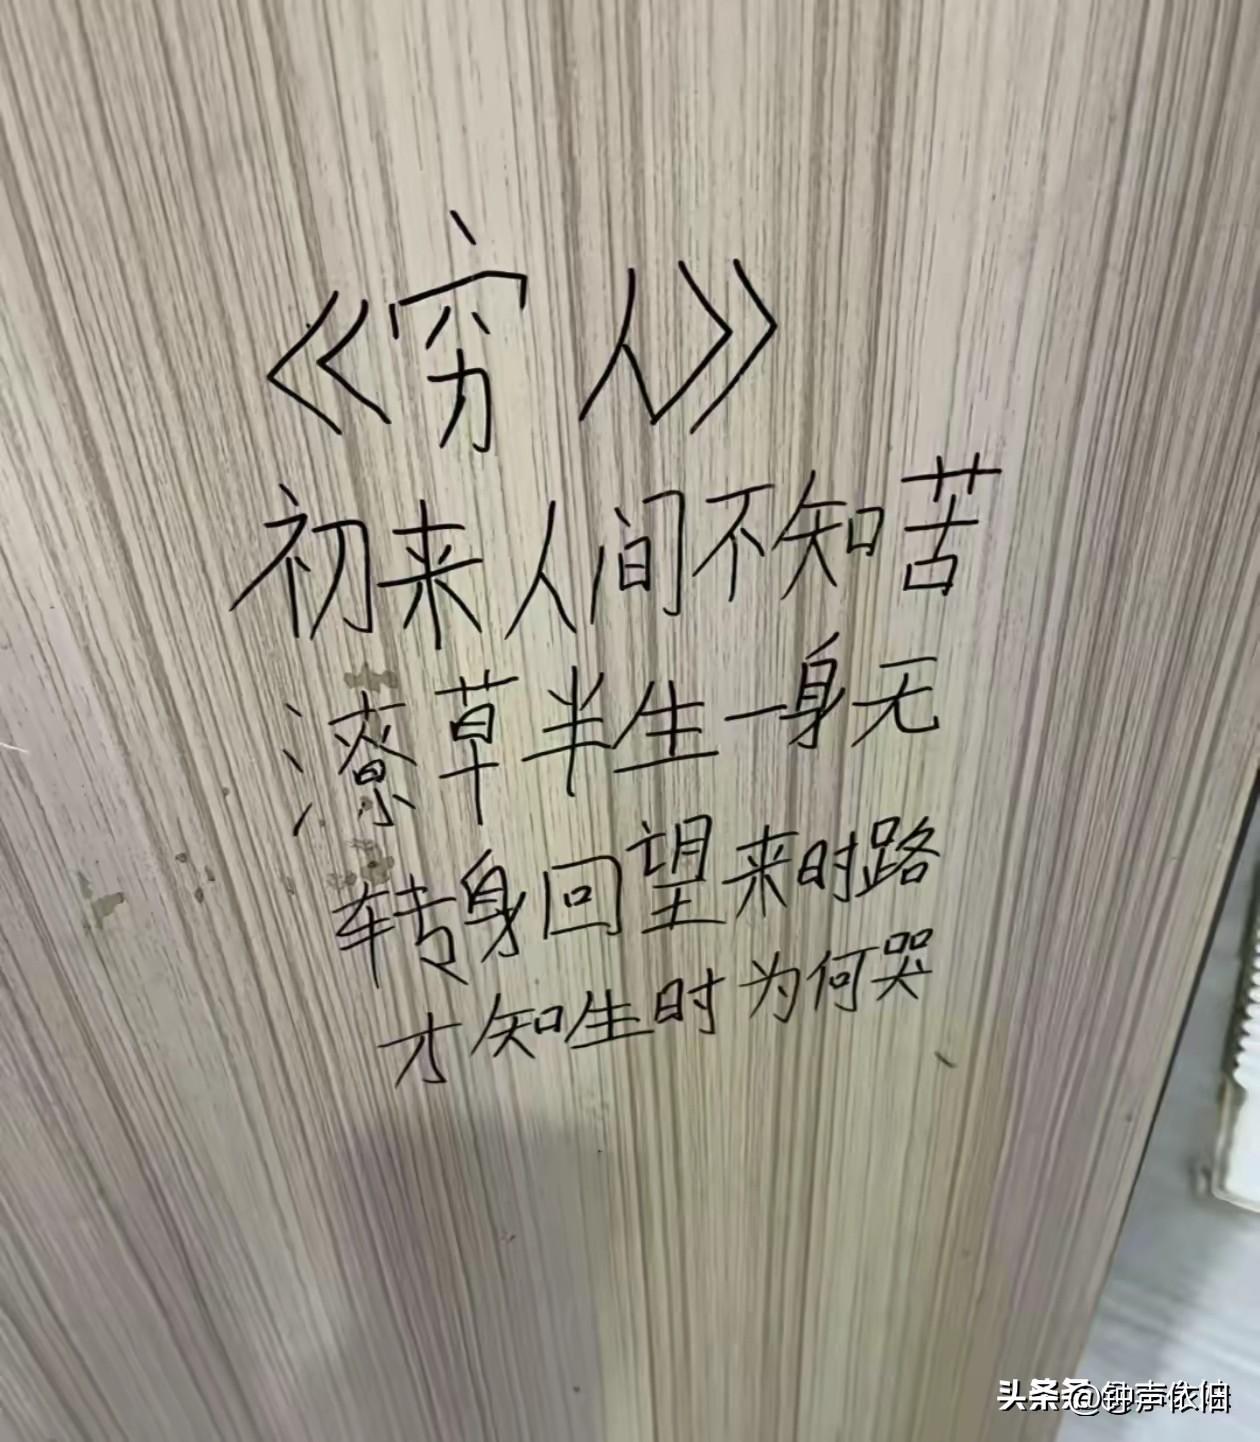 《穷人》
初来人间不知苦
潦草半生一身无
转身回望来时路
才知生时为何哭
头条 @钟声依旧